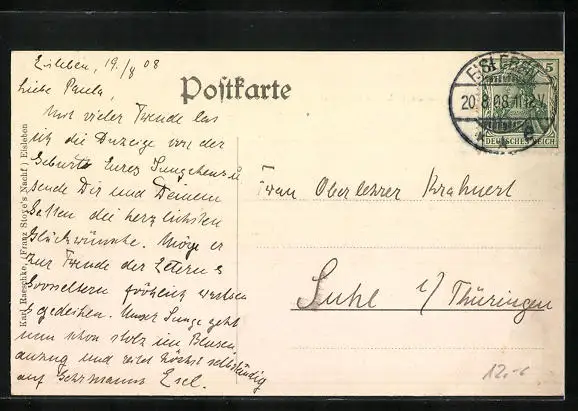 Eisleben, 19./8 08
Liebe Paula,
Mit vieler Freude las
ich die Anzeige von der
Geburt Eures Jungchens u.
sende Dir und Deinem
Gatten die herzlichsten
Glückwünsche. Möge er
zur Freude der Eltern &
Grosseltern fröhlich wachsen
& gedeihen. Unser Junge geht
nun schon stolz im Blusen
anzug und reitet höchst selbständig
auf Esel.
Postkarte
Karl Raeschke, (Franz Stoye's Nachf.) Eisleben
EISLEBEN
20.8.08.11-12V.
5
DEUTSCHES REICH
Frau Oberlehrer Krahnert
Suhl i/Thüringen
12.-